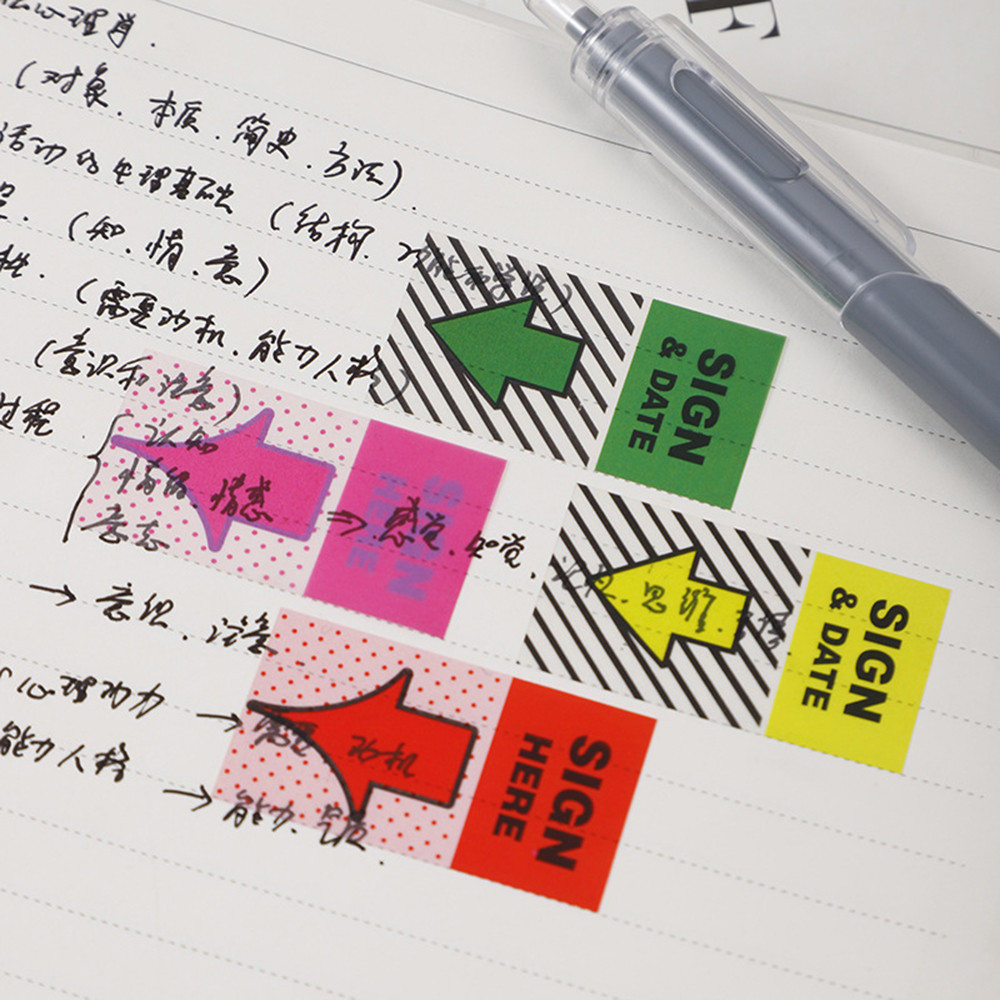 F
心理学
(对象. 本质. 简史. 方法).
活动的生理基础 (结构. 功能和学说)
(知. 情. 意)
(需要动机. 能力人格)
SIGN
& DATE
(意识和注意)
过程
认知
情绪. 情感 → 感觉. 知觉.
意志
SIGN
HERE
思维.
SIGN
& DATE
→ 意识. 注意.
心理动力 → 需要 动机
能力人格 → 能力. 气质.
SIGN
HERE